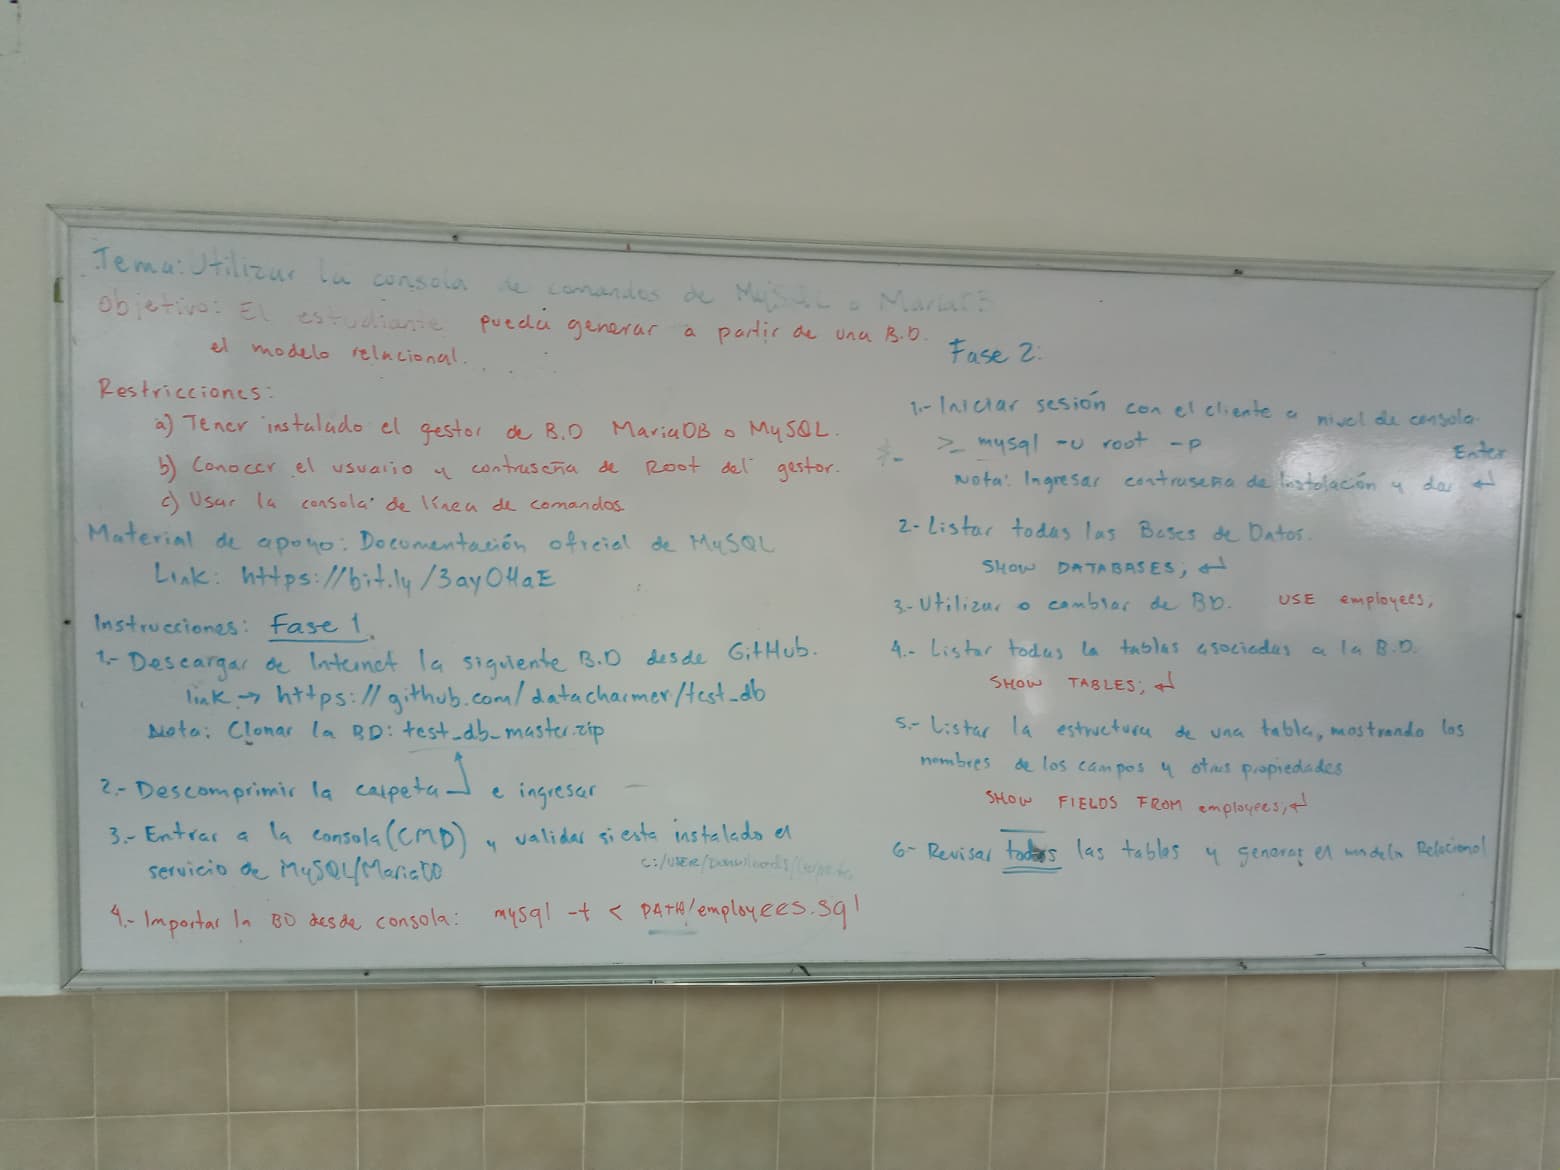 Tema: Utilizar la consola de comandos de MySQL o MariaDB
Objetivo: El estudiante pueda generar a partir de una B.D.
el modelo relacional.
Restricciones:
a) Tener instalado el gestor de B.D MariaDB o MySQL.
b) Conocer el usuario y contraseña de Root del gestor.
c) Usar la consola de línea de comandos
Material de apoyo: Documentación oficial de MySQL
Link: https://bit.ly/3ayOHaE
Instrucciones: Fase 1.
1.- Descargar de Internet la siguiente B.D desde GitHub.
link → https://github.com/datacharmer/test_db
Nota: Clonar la BD: test_db_master.zip
2.- Descomprimir la carpeta e ingresar
3.- Entrar a la consola (CMD) y validar si esta instalado el
servicio de MySQL/MariaDB
C:/USER/Downloads/
4.- Importar la BD desde consola: mysql -t < PATH/employees.sql
Fase 2:
1.- Iniciar sesión con el cliente a nivel de consola.
>_ mysql -u root -p
Enter
Nota: Ingresar contraseña de instalación y dar ↵
2- Listar todas las Bases de Datos.
SHOW DATABASES; ↵
3.- Utilizar o cambiar de BD. USE employees;
4.- Listar todas la tablas asociadas a la B.D.
SHOW TABLES; ↵
5.- Listar la estructura de una tabla, mostrando los
nombres de los campos y otras propiedades
SHOW FIELDS FROM employees; ↵
6- Revisar todas las tablas y generar el modelo Relacional